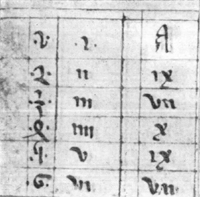 .1. .i. A
.2. ii ix
.3. iii vii
.4. iiii x
.5. v ix
.6. vi vii